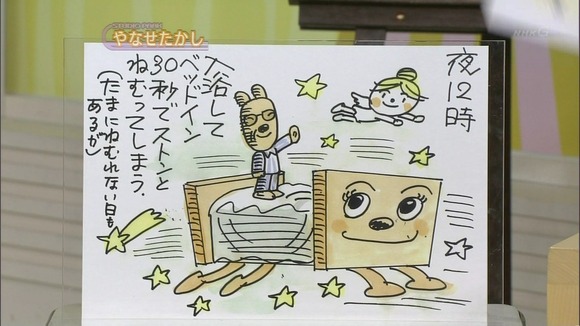 やなせたかし
NHK G
夜12時
入浴して
ベッドイン
30秒でストンと
ねむってしまう。
(たまにねむれない日も
あるが)